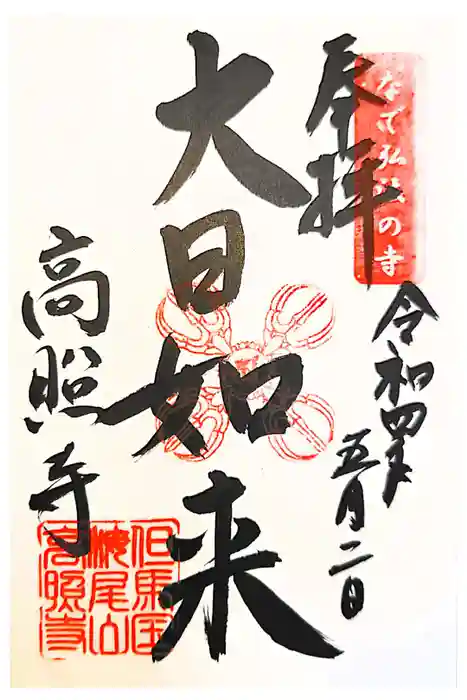 なで弘法の寺
奉拝
令和四年
五月二日
大日如来
高照寺
但馬国
高照寺